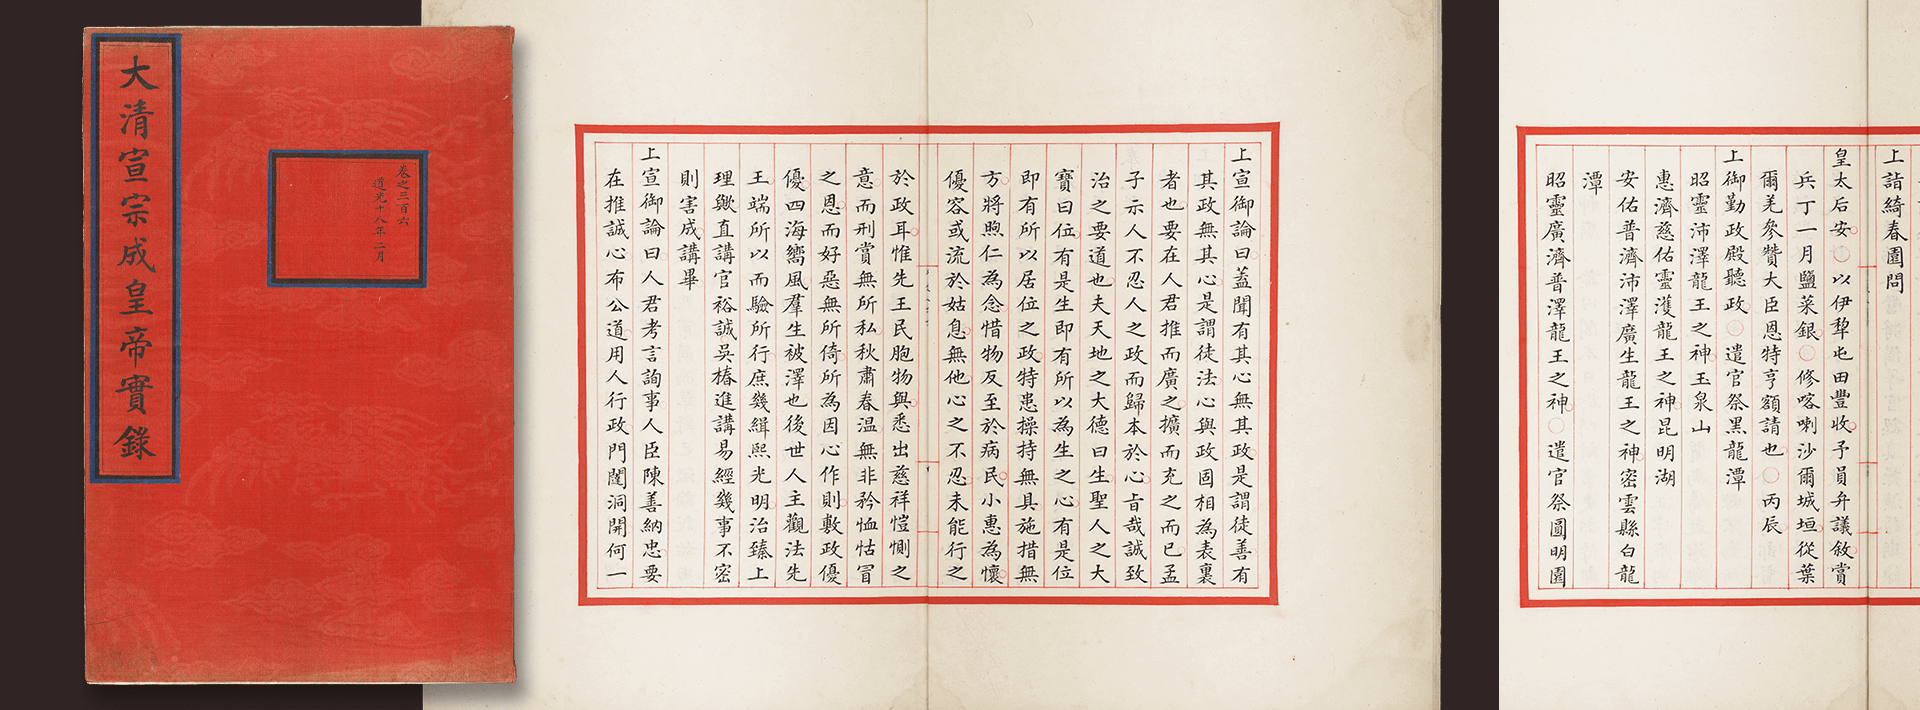 大清宣宗成皇帝實錄
卷之三百六
道光十八年二月
上宣御論曰蓋聞有其心無其政是謂徒善有
其政無其心是謂徒法心與政固相為表裏
者也要在人君推而廣之擴而充之而已孟
子示人不忍人之政而歸本於心旨哉誠致
治之要道也夫天地之大德曰生聖人之大
寶曰位有是生即有所以為生之心有是位
即有所以居位之政特患操持無具施措無
方將煦仁為念惜物反至於病民小惠為懷
優容或流於姑息無他心之不忍未能行之
於政耳惟先王民胞物與悉出慈祥愷惻之
意而刑賞無所私秋肅春溫無非矜恤怙冒
之恩而好惡無所倚所為因心作則敷政優
優四海嚮風羣生被澤也後世人主觀法先
王端所以而驗所行庶幾緝熙光明治臻上
理歟直講官裕誠吳椿進講易經幾事不密
則害成講畢
上宣御論曰人君考言詢事人臣陳善納忠要
在推誠心布公道用人行政門闥洞開何一
上詣綺春園問
皇太后安○以伊犂屯田豐收予員弁議敘賞
兵丁一月鹽菜銀○修喀喇沙爾城垣從葉
爾羌參贊大臣恩特亨額請也○丙辰
上御勤政殿聽政○遣官祭黑龍潭
昭靈沛澤龍王之神玉泉山
惠濟慈佑靈濩龍王之神昆明湖
安佑普濟沛澤廣生龍王之神密雲縣白龍
潭
昭靈廣濟普澤龍王之神○遣官祭圓明園